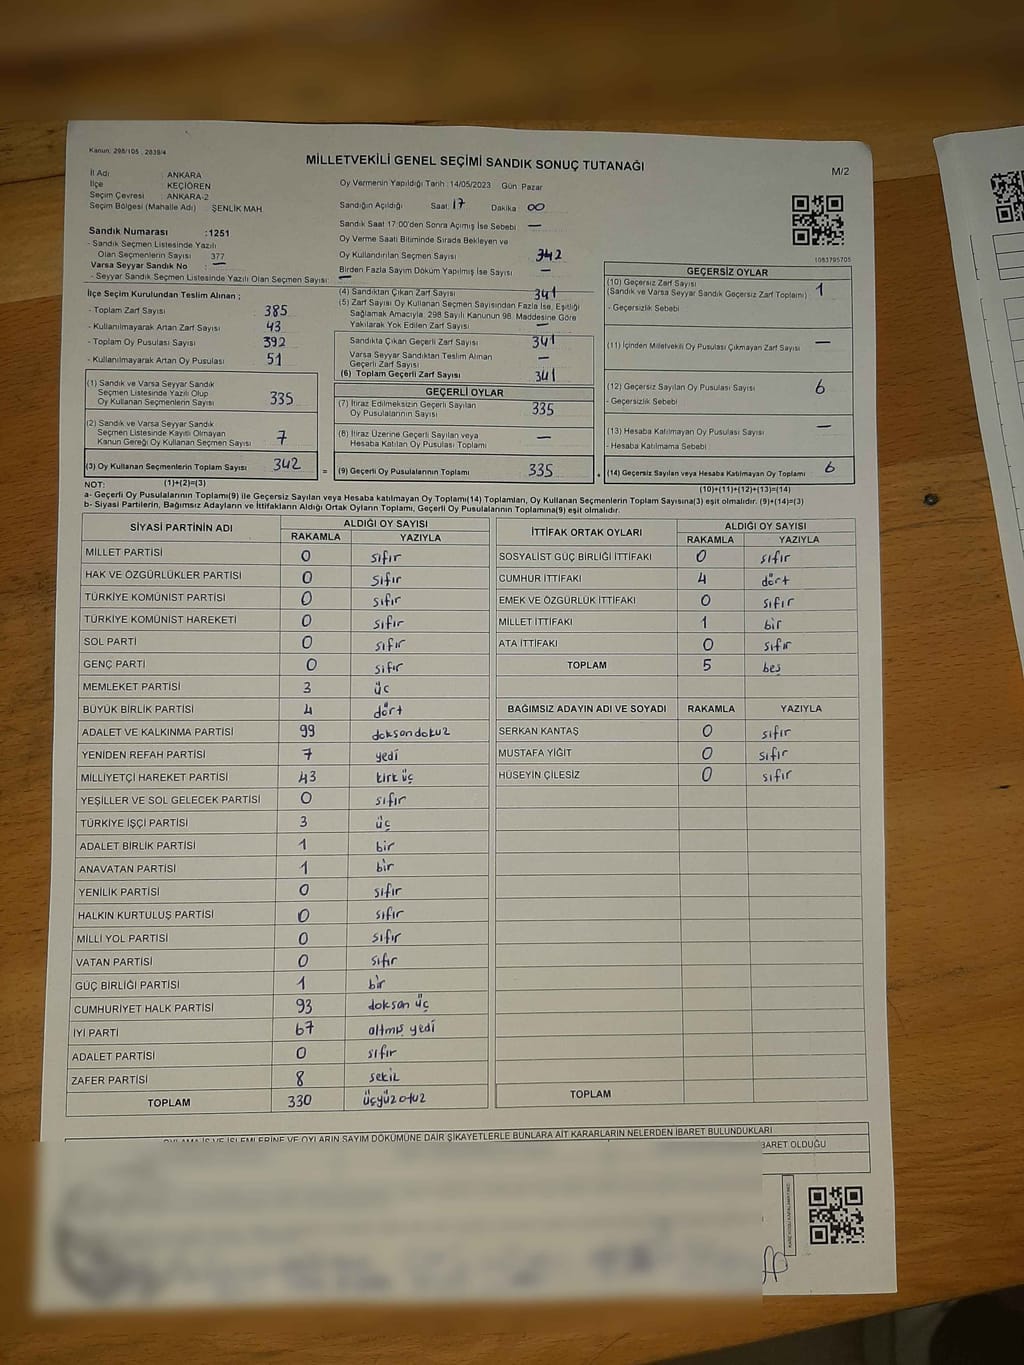 Kanun: 298/105 , 2839/4
MİLLETVEKİLİ GENEL SEÇİMİ SANDIK SONUÇ TUTANAĞI
M/2
İl Adı : ANKARA
İlçe : KEÇİÖREN
Seçim Çevresi : ANKARA-2
Seçim Bölgesi (Mahalle Adı) : ŞENLİK MAH
Oy Vermenin Yapıldığı Tarih :14/05/2023 Gün Pazar
Sandığın Açıldığı Saat 17 Dakika 00
Sandık Saat 17:00'den Sonra Açımış İse Sebebi —
Oy Verme Saati Bitiminde Sırada Bekleyen ve
Oy Kullandırılan Seçmen Sayısı 342
Birden Fazla Sayım Döküm Yapılmış İse Sayısı —
1083795705
Sandık Numarası :1251
- Sandık Seçmen Listesinde Yazılı
Olan Seçmenlerin Sayısı 377
Varsa Seyyar Sandık No : —
- Seyyar Sandık Seçmen Listesinde Yazılı Olan Seçmen Sayısı: —
İlçe Seçim Kurulundan Teslim Alınan ;
- Toplam Zarf Sayısı 385
- Kullanılmayarak Artan Zarf Sayısı 43
- Toplam Oy Pusulası Sayısı 392
- Kullanılmayarak Artan Oy Pusulası 51
(1) Sandık ve Varsa Seyyar Sandık
Seçmen Listesinde Yazılı Olup
Oy Kullanan Seçmenlerin Sayısı 335
(2) Sandık ve Varsa Seyyar Sandık
Seçmen Listesinde Kayıtlı Olmayan
Kanun Gereği Oy Kullanan Seçmen Sayısı 7
(3) Oy Kullanan Seçmenlerin Toplam Sayısı 342 =
(4) Sandıktan Çıkan Zarf Sayısı 341
(5) Zarf Sayısı Oy Kullanan Seçmen Sayısından Fazla İse, Eşitliği
Sağlamak Amacıyla, 298 Sayılı Kanunun 98. Maddesine Göre
Yakılarak Yok Edilen Zarf Sayısı —
Sandıkta Çıkan Geçerli Zarf Sayısı 341
Varsa Seyyar Sandıktan Teslim Alınan
Geçerli Zarf Sayısı —
(6) Toplam Geçerli Zarf Sayısı 341
GEÇERLİ OYLAR
(7) İtiraz Edilmeksizin Geçerli Sayılan
Oy Pusulalarının Sayısı 335
(8) İtiraz Üzerine Geçerli Sayılan veya
Hesaba Katılan Oy Pusulası Toplamı —
(9) Geçerli Oy Pusulalarının Toplamı 335
GEÇERSİZ OYLAR
(10) Geçersiz Zarf Sayısı
(Sandık ve Varsa Seyyar Sandık Geçersiz Zarf Toplamı) 1
- Geçersizlik Sebebi
(11) İçinden Milletvekili Oy Pusulası Çıkmayan Zarf Sayısı —
(12) Geçersiz Sayılan Oy Pusulası Sayısı 6
- Geçersizlik Sebebi
(13) Hesaba Katılmayan Oy Pusulası Sayısı —
- Hesaba Katılmama Sebebi
(14) Geçersiz Sayılan veya Hesaba Katılmayan Oy Toplamı 6
NOT: (1)+(2)=(3)
(10)+(11)+(12)+(13)=(14)
a- Geçerli Oy Pusulalarının Toplamı(9) ile Geçersiz Sayılan veya Hesaba katılmayan Oy Toplamı(14) Toplamları, Oy Kullanan Seçmenlerin Toplam Sayısına(3) eşit olmalıdır. (9)+(14)=(3)
b- Siyasi Partilerin, Bağımsız Adayların ve İttifakların Aldığı Ortak Oyların Toplamı, Geçerli Oy Pusulalarının Toplamına(9) eşit olmalıdır.
SİYASİ PARTİNİN ADI ALDIĞI OY SAYISI
RAKAMLA YAZIYLA
MİLLET PARTİSİ 0 sıfır
HAK VE ÖZGÜRLÜKLER PARTİSİ 0 sıfır
TÜRKİYE KOMÜNİST PARTİSİ 0 sıfır
TÜRKİYE KOMÜNİST HAREKETİ 0 sıfır
SOL PARTİ 0 sıfır
GENÇ PARTİ 0 sıfır
MEMLEKET PARTİSİ 3 üç
BÜYÜK BİRLİK PARTİSİ 4 dört
ADALET VE KALKINMA PARTİSİ 99 doksandokuz
YENİDEN REFAH PARTİSİ 7 yedi
MİLLİYETÇİ HAREKET PARTİSİ 43 kırk üç
YEŞİLLER VE SOL GELECEK PARTİSİ 0 sıfır
TÜRKİYE İŞÇİ PARTİSİ 3 üç
ADALET BİRLİK PARTİSİ 1 bir
ANAVATAN PARTİSİ 1 bir
YENİLİK PARTİSİ 0 sıfır
HALKIN KURTULUŞ PARTİSİ 0 sıfır
MİLLİ YOL PARTİSİ 0 sıfır
VATAN PARTİSİ 0 sıfır
GÜÇ BİRLİĞİ PARTİSİ 1 bir
CUMHURİYET HALK PARTİSİ 93 doksan üç
İYİ PARTİ 67 altmış yedi
ADALET PARTİSİ 0 sıfır
ZAFER PARTİSİ 8 sekiz
TOPLAM 330 üçyüzotuz
İTTİFAK ORTAK OYLARI ALDIĞI OY SAYISI
RAKAMLA YAZIYLA
SOSYALİST GÜÇ BİRLİĞİ İTTİFAKI 0 sıfır
CUMHUR İTTİFAKI 4 dört
EMEK VE ÖZGÜRLÜK İTTİFAKI 0 sıfır
MİLLET İTTİFAKI 1 bir
ATA İTTİFAKI 0 sıfır
TOPLAM 5 beş
BAĞIMSIZ ADAYIN ADI VE SOYADI RAKAMLA YAZIYLA
SERKAN KANTAŞ 0 sıfır
MUSTAFA YİĞİT 0 sıfır
HÜSEYİN ÇİLESİZ 0 sıfır
TOPLAM
OYLAMA İŞ VE İŞLEMLERİNE VE OYLARIN SAYIM DÖKÜMÜNE DAİR ŞİKAYETLERLE BUNLARA AİT KARARLARIN NELERDEN İBARET BULUNDUKLARI
İBARET OLDUĞU